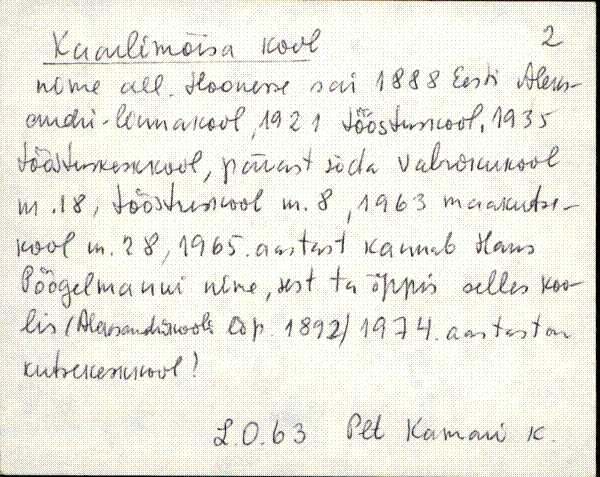 Kaarlimõisa kool 2
nime all. Hoonesse sai 1888 Eesti Aleks-
andri-linnakool, 1921 tööstuskool, 1935
tööstuskeskkool, pärast sõda vabrikukool
nr. 18, tööstuskool nr. 8, 1963 maakutse-
kool nr. 28, 1965. aastast kannab Hans
Pöögelmanni nime, sest ta õppis selles koo-
lis (Aleksandrikooli lõp. 1892) 1974. aastast on
kutsekeskkool!
L.O.63 Plt Kamari k.